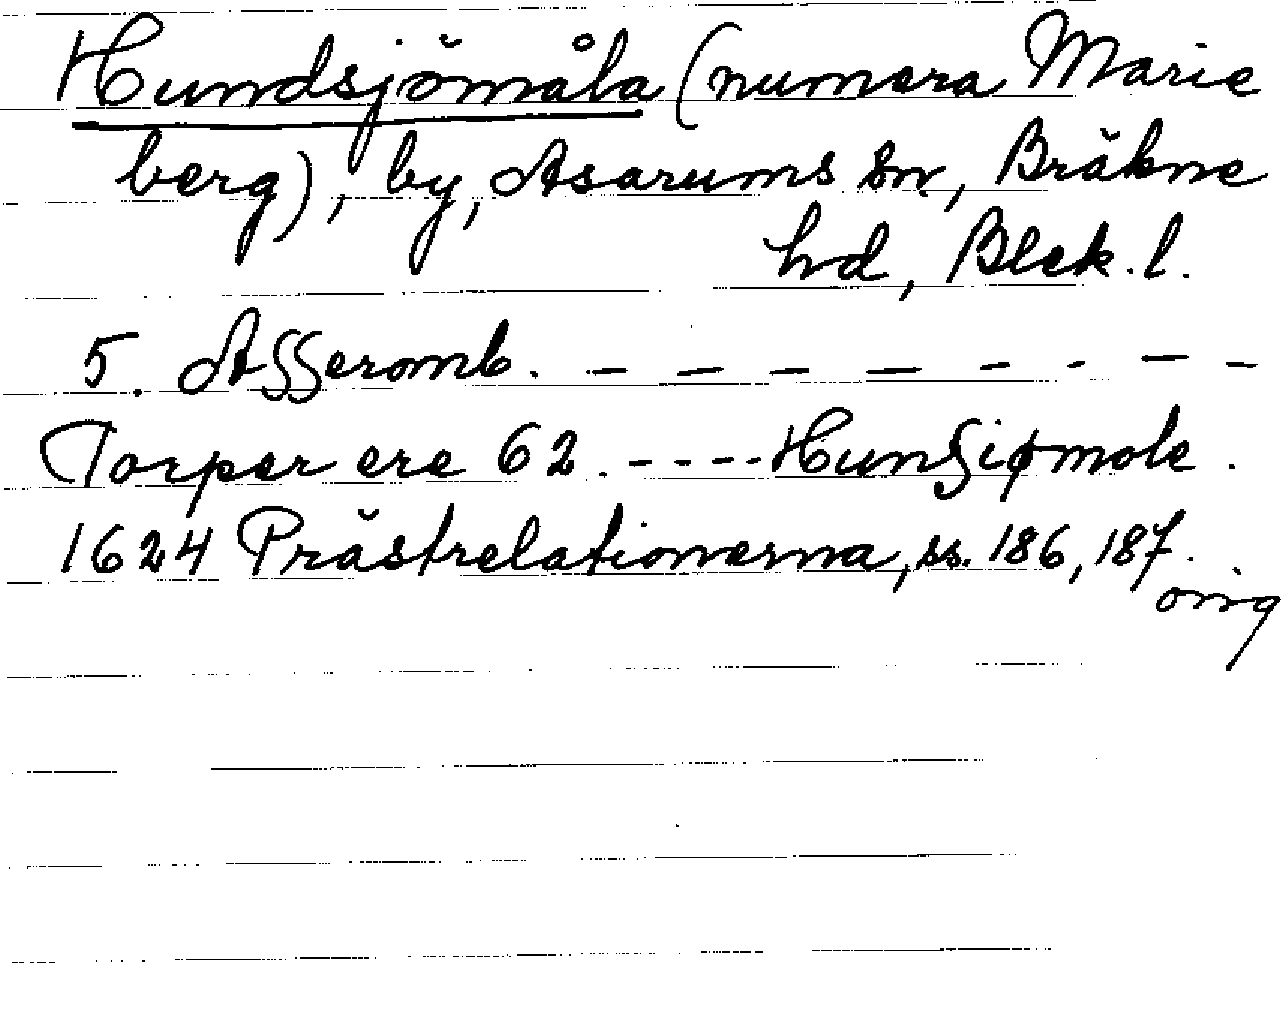 Hundsjömåla (numera Marie
berg), by, Asarums sn, Bräkne
hd, Blek. l.
5. Asseromb. - - - - - - - -
Torper ere 62. - - - - Hunsiømole.
1624 Prästrelationerna, ss. 186, 187.
orig